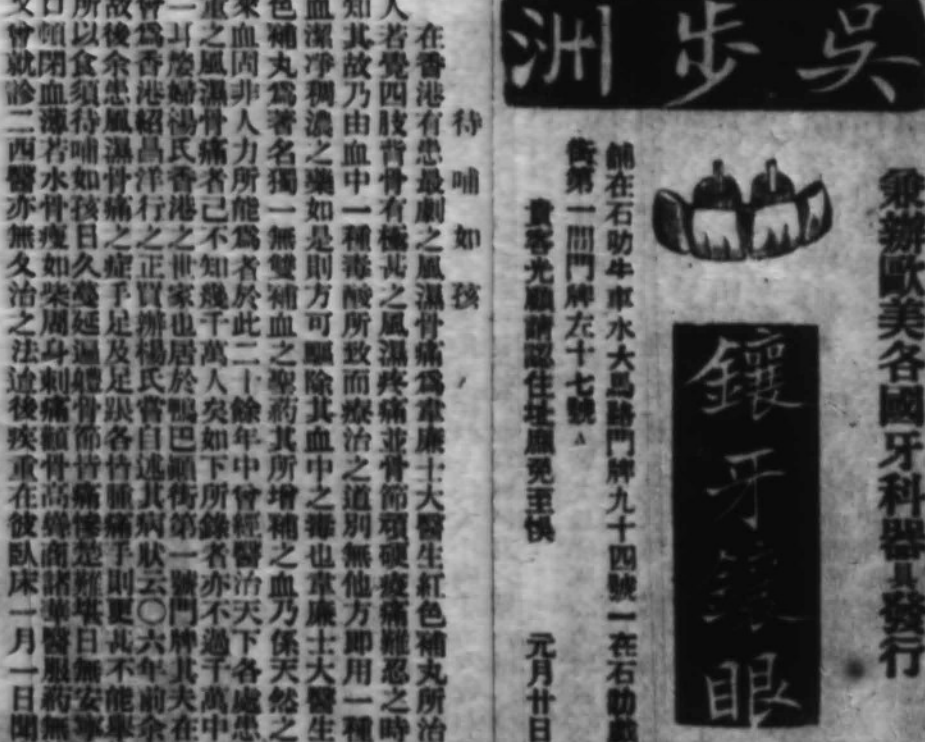 吳步洲
兼辦歐美各國牙科器具發行
鑲牙鑲眼
舖在石叻牛車水大馬路門牌九十四號一在石叻戲
街第一間門牌左十七號
貴客光顧請認住址庶免至悞　元月廿日
待哺如孩
在香港有患最劇之風濕骨痛為韋廉士大醫生紅色補丸所治
人若覺四肢背骨有極甚之風濕疼痛並骨節頑硬疲痛難忍之時
知其故乃由血中一種毒酸所致而療治之道別無他方即用一種
血潔凈稠濃之藥如是則方可驅除其血中之毒也韋廉士大醫生
色補丸為著名獨一無雙補血之聖药其所增補之血乃係天然之
來血固非人力所能為者於此二十餘年中曾經醫治天下各處患
重之風濕骨痛者已不知幾千萬人矣如下所錄者亦不過千萬中
一耳麥婦湯氏香港之世家也居於鴨巴顛街第一號門牌其夫在
會為香港紹昌洋行之正買辦楊氏嘗自述其病狀云〇六年前余
故後余患風濕骨痛之症手足及足踭各竹腫痛手則更甚不能舉
所以食須待哺如孩日久蔓延遍體骨節皆痛慘楚難堪日無安寧
口頻閉血薄若水骨瘦如柴周身刺痛顴骨高聳商諸華醫服药無
又曾就診二西醫亦無久治之法迨後疾重在彼臥床一月一日閱